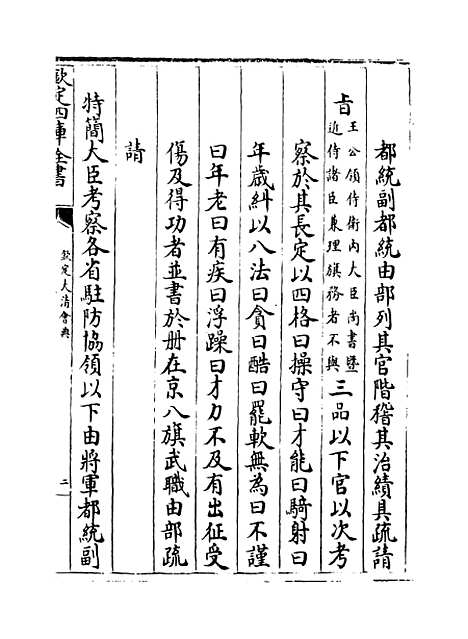 都統副都統由部列其官階稽其治績具疏請
旨王公領侍衛內大臣尚書暨
近侍諸臣兼理旗務者不與三品以下官以次考
察於其長定以四格曰操守曰才能曰騎射曰
年歲糾以八法曰貪曰酷曰罷軟無為曰不謹
曰年老曰有疾曰浮躁曰才力不及有出征受
傷及得功者並書於冊在京八旗武職由部疏
請
特簡大臣考察各省駐防協領以下由將軍都統副
欽定四庫全書
欽定大清會典
二